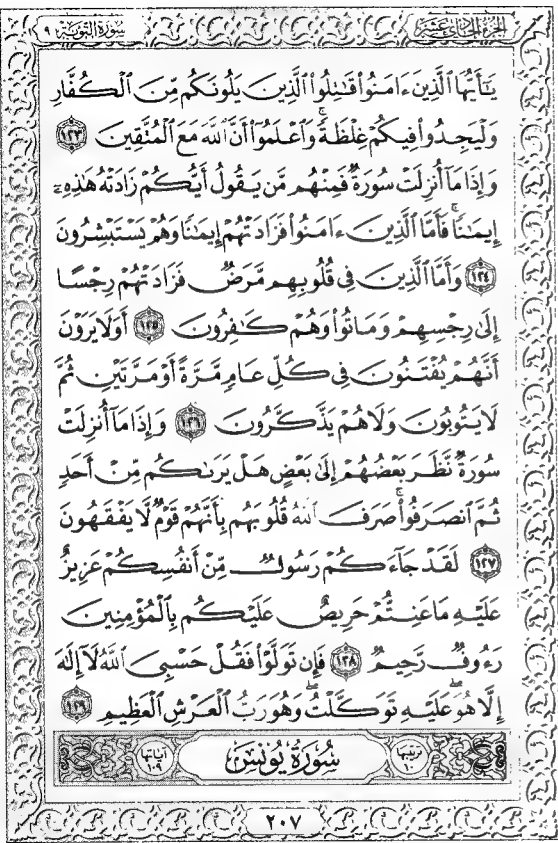 الجزء الحادي عشر
سورة التوبة ٩
يَٰٓأَيُّهَا ٱلَّذِينَ ءَامَنُوا۟ قَٰتِلُوا۟ ٱلَّذِينَ يَلُونَكُم مِّنَ ٱلْكُفَّارِ
وَلْيَجِدُوا۟ فِيكُمْ غِلْظَةً ۚ وَٱعْلَمُوٓا۟ أَنَّ ٱللَّهَ مَعَ ٱلْمُتَّقِينَ ١٢٣
وَإِذَا مَآ أُنزِلَتْ سُورَةٌ فَمِنْهُم مَّن يَقُولُ أَيُّكُمْ زَادَتْهُ هَٰذِهِۦٓ
إِيمَٰنًا ۚ فَأَمَّا ٱلَّذِينَ ءَامَنُوا۟ فَزَادَتْهُمْ إِيمَٰنًا وَهُمْ يَسْتَبْشِرُونَ
١٢٤ وَأَمَّا ٱلَّذِينَ فِى قُلُوبِهِم مَّرَضٌ فَزَادَتْهُمْ رِجْسًا
إِلَىٰ رِجْسِهِمْ وَمَاتُوا۟ وَهُمْ كَٰفِرُونَ ١٢٥ أَوَلَا يَرَوْنَ
أَنَّهُمْ يُفْتَنُونَ فِى كُلِّ عَامٍ مَّرَّةً أَوْ مَرَّتَيْنِ ثُمَّ
لَا يَتُوبُونَ وَلَا هُمْ يَذَّكَّرُونَ ١٢٦ وَإِذَا مَآ أُنزِلَتْ
سُورَةٌ نَّظَرَ بَعْضُهُمْ إِلَىٰ بَعْضٍ هَلْ يَرَىٰكُم مِّنْ أَحَدٍ
ثُمَّ ٱنصَرَفُوا۟ ۚ صَرَفَ ٱللَّهُ قُلُوبَهُم بِأَنَّهُمْ قَوْمٌ لَّا يَفْقَهُونَ
١٢٧ لَقَدْ جَآءَكُمْ رَسُولٌ مِّنْ أَنفُسِكُمْ عَزِيزٌ
عَلَيْهِ مَا عَنِتُّمْ حَرِيصٌ عَلَيْكُم بِٱلْمُؤْمِنِينَ
رَءُوفٌ رَّحِيمٌ ١٢٨ فَإِن تَوَلَّوْا۟ فَقُلْ حَسْبِىَ ٱللَّهُ لَآ إِلَٰهَ
إِلَّا هُوَ ۖ عَلَيْهِ تَوَكَّلْتُ ۖ وَهُوَ رَبُّ ٱلْعَرْشِ ٱلْعَظِيمِ ١٢٩
ترتيبها ١٠ سُورَةُ يُونُسَ آياتها ١٠٩
٢٠٧